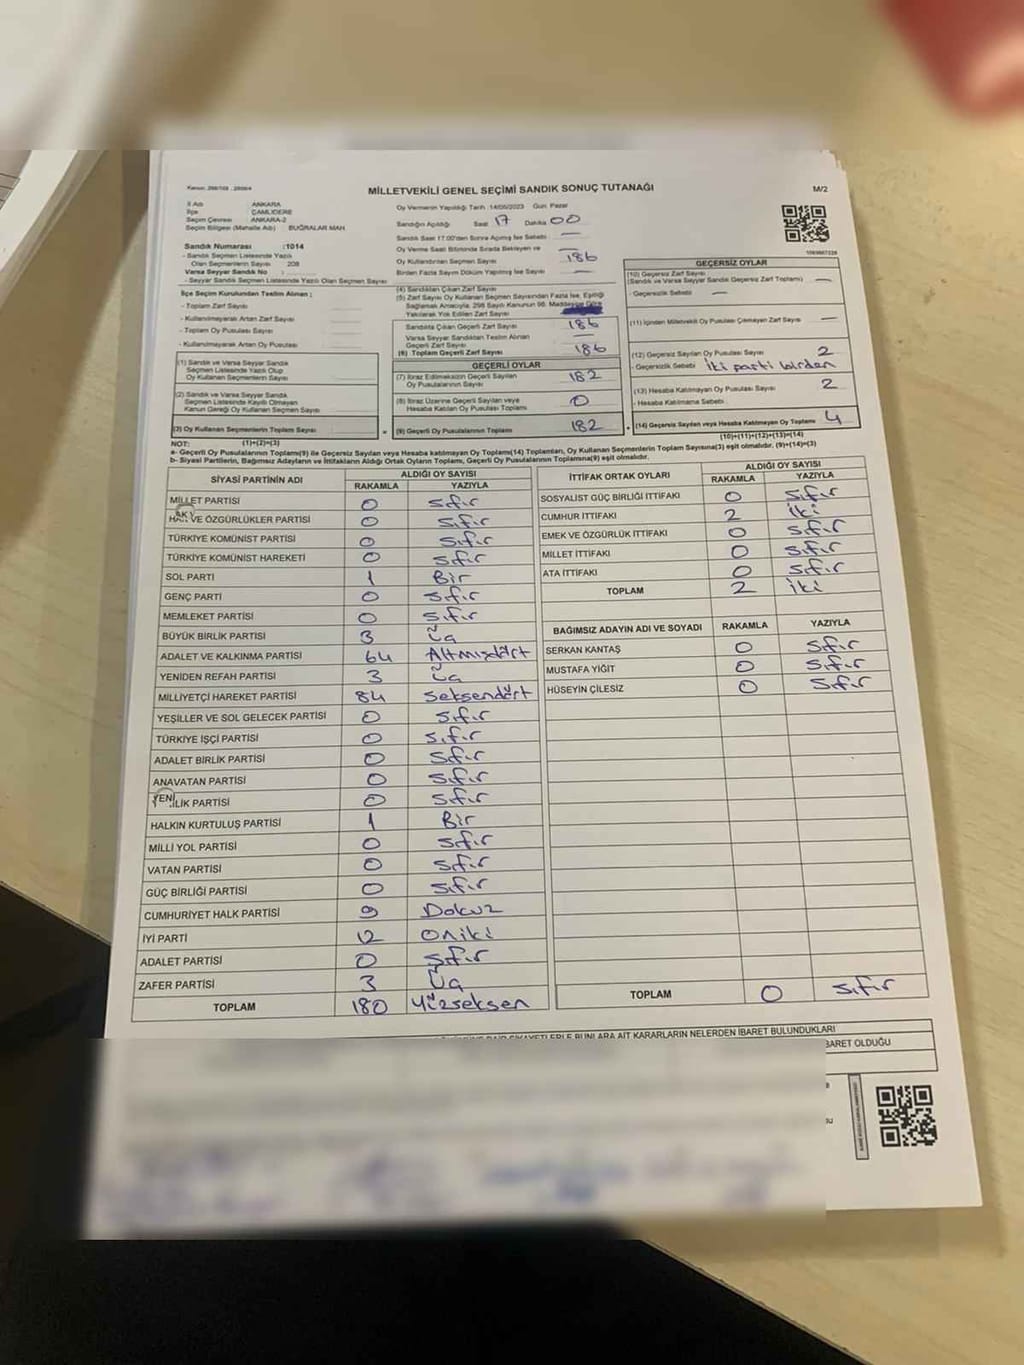 Kanun: 298/105 , 2839/4
MİLLETVEKİLİ GENEL SEÇİMİ SANDIK SONUÇ TUTANAĞI
M/2
İl Adı : ANKARA
İlçe : ÇAMLIDERE
Seçim Çevresi : ANKARA-2
Seçim Bölgesi (Mahalle Adı) BUĞRALAR MAH
Sandık Numarası :1014
- Sandık Seçmen Listesinde Yazılı
Olan Seçmenlerin Sayısı 208
Varsa Seyyar Sandık No :
- Seyyar Sandık Seçmen Listesinde Yazılı Olan Seçmen Sayısı
İlçe Seçim Kurulundan Teslim Alınan ;
- Toplam Zarf Sayısı
- Kullanılmayarak Artan Zarf Sayısı
- Toplam Oy Pusulası Sayısı
- Kullanılmayarak Artan Oy Pusulası
(1) Sandık ve Varsa Seyyar Sandık
Seçmen Listesinde Yazılı Olup
Oy Kullanan Seçmenlerin Sayısı
(2) Sandık ve Varsa Seyyar Sandık
Seçmen Listesinde Kayıtlı Olmayan
Kanun Gereği Oy Kullanan Seçmen Sayısı
(3) Oy Kullanan Seçmenlerin Toplam Sayısı
(1)+(2)=(3)
Oy Vermenin Yapıldığı Tarih :14/05/2023 Gün: Pazar
Sandığın Açıldığı Saat 17 Dakika 00
Sandık Saat 17:00'den Sonra Açılmış İse Sebebi : —
Oy Verme Saati Bitiminde Sırada Bekleyen ve
Oy Kullandırılan Seçmen Sayısı 186
Birden Fazla Sayım Döküm Yapılmış İse Sayısı —
(4) Sandıktan Çıkan Zarf Sayısı
(5) Zarf Sayısı Oy Kullanan Seçmen Sayısından Fazla İse, Eşitliği
Sağlamak Amacıyla, 298 Sayılı Kanunun 98. Maddesine Göre
Yakılarak Yok Edilen Zarf Sayısı
Sandıkta Çıkan Geçerli Zarf Sayısı 186
Varsa Seyyar Sandıktan Teslim Alınan
Geçerli Zarf Sayısı
(6) Toplam Geçerli Zarf Sayısı 186
GEÇERLİ OYLAR
(7) İtiraz Edilmeksizin Geçerli Sayılan
Oy Pusulalarının Sayısı 182
(8) İtiraz Üzerine Geçerli Sayılan veya
Hesaba Katılan Oy Pusulası Toplamı 0
(9) Geçerli Oy Pusulalarının Toplamı 182
GEÇERSİZ OYLAR
(10) Geçersiz Zarf Sayısı
(Sandık ve Varsa Seyyar Sandık Geçersiz Zarf Toplamı) —
- Geçersizlik Sebebi —
(11) İçinden Milletvekili Oy Pusulası Çıkmayan Zarf Sayısı —
(12) Geçersiz Sayılan Oy Pusulası Sayısı 2
- Geçersizlik Sebebi : iki parti birden
(13) Hesaba Katılmayan Oy Pusulası Sayısı 2
- Hesaba Katılmama Sebebi :
(14) Geçersiz Sayılan veya Hesaba Katılmayan Oy Toplamı 4
(10)+(11)+(12)+(13)=(14)
NOT:
a- Geçerli Oy Pusulalarının Toplamı(9) ile Geçersiz Sayılan veya Hesaba katılmayan Oy Toplamı(14) Toplamları, Oy Kullanan Seçmenlerin Toplam Sayısına(3) eşit olmalıdır. (9)+(14)=(3)
b- Siyasi Partilerin, Bağımsız Adayların ve İttifakların Aldığı Ortak Oyların Toplamı, Geçerli Oy Pusulalarının Toplamına(9) eşit olmalıdır.
SİYASİ PARTİNİN ADI ALDIĞI OY SAYISI
RAKAMLA YAZIYLA
MİLLET PARTİSİ 0 Sıfır
HAK VE ÖZGÜRLÜKLER PARTİSİ 0 Sıfır
TÜRKİYE KOMÜNİST PARTİSİ 0 Sıfır
TÜRKİYE KOMÜNİST HAREKETİ 0 Sıfır
SOL PARTİ 1 Bir
GENÇ PARTİ 0 Sıfır
MEMLEKET PARTİSİ 0 Sıfır
BÜYÜK BİRLİK PARTİSİ 3 Üç
ADALET VE KALKINMA PARTİSİ 64 Altmışdört
YENİDEN REFAH PARTİSİ 3 Üç
MİLLİYETÇİ HAREKET PARTİSİ 84 Seksendört
YEŞİLLER VE SOL GELECEK PARTİSİ 0 Sıfır
TÜRKİYE İŞÇİ PARTİSİ 0 Sıfır
ADALET BİRLİK PARTİSİ 0 Sıfır
ANAVATAN PARTİSİ 0 Sıfır
YENİLİK PARTİSİ 0 Sıfır
HALKIN KURTULUŞ PARTİSİ 1 Bir
MİLLİ YOL PARTİSİ 0 Sıfır
VATAN PARTİSİ 0 Sıfır
GÜÇ BİRLİĞİ PARTİSİ 0 Sıfır
CUMHURİYET HALK PARTİSİ 9 Dokuz
İYİ PARTİ 12 Oniki
ADALET PARTİSİ 0 Sıfır
ZAFER PARTİSİ 3 Üç
TOPLAM 180 Yüzseksen
İTTİFAK ORTAK OYLARI ALDIĞI OY SAYISI
RAKAMLA YAZIYLA
SOSYALİST GÜÇ BİRLİĞİ İTTİFAKI 0 Sıfır
CUMHUR İTTİFAKI 2 İki
EMEK VE ÖZGÜRLÜK İTTİFAKI 0 Sıfır
MİLLET İTTİFAKI 0 Sıfır
ATA İTTİFAKI 0 Sıfır
TOPLAM 2 İki
BAĞIMSIZ ADAYIN ADI VE SOYADI RAKAMLA YAZIYLA
SERKAN KANTAŞ 0 Sıfır
MUSTAFA YİĞİT 0 Sıfır
HÜSEYİN ÇİLESİZ 0 Sıfır
TOPLAM 0 Sıfır
BUNLARA AİT KARARLARIN NELERDEN İBARET BULUNDUKLARI
BARET OLDUĞU